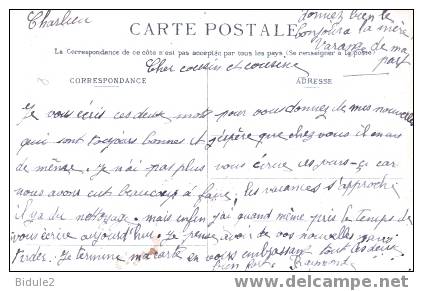 Charlieu
donnez bien le
CARTE POSTALE
bonjour a la mère
La Correspondance de ce côté n'est pas acceptée par tous les pays (Se renseigner à la poste)
Varanne de ma
part
Cher cousin et cousine
CORRESPONDANCE
ADRESSE
Je vous écris ces deux mots pour vous donnez de mes nouvelles
qui sont toujours bonnes et j'éspère que chez vous il en es
de même. Je n'ai pas plus vous écrire ces jours-ci car
nous avons eut beaucoup à faire, les vacances s'approche
il y a du nettoyage, mais enfin j'ai quand même pris le temps de
vous écrire aujourd'hui. Je pense avoir de vos nouvelles sans
tarder. Je termine ma carte en vous embrassant tout les deux
bien fort. Raymonde
Bidule2
www.delcampe.net